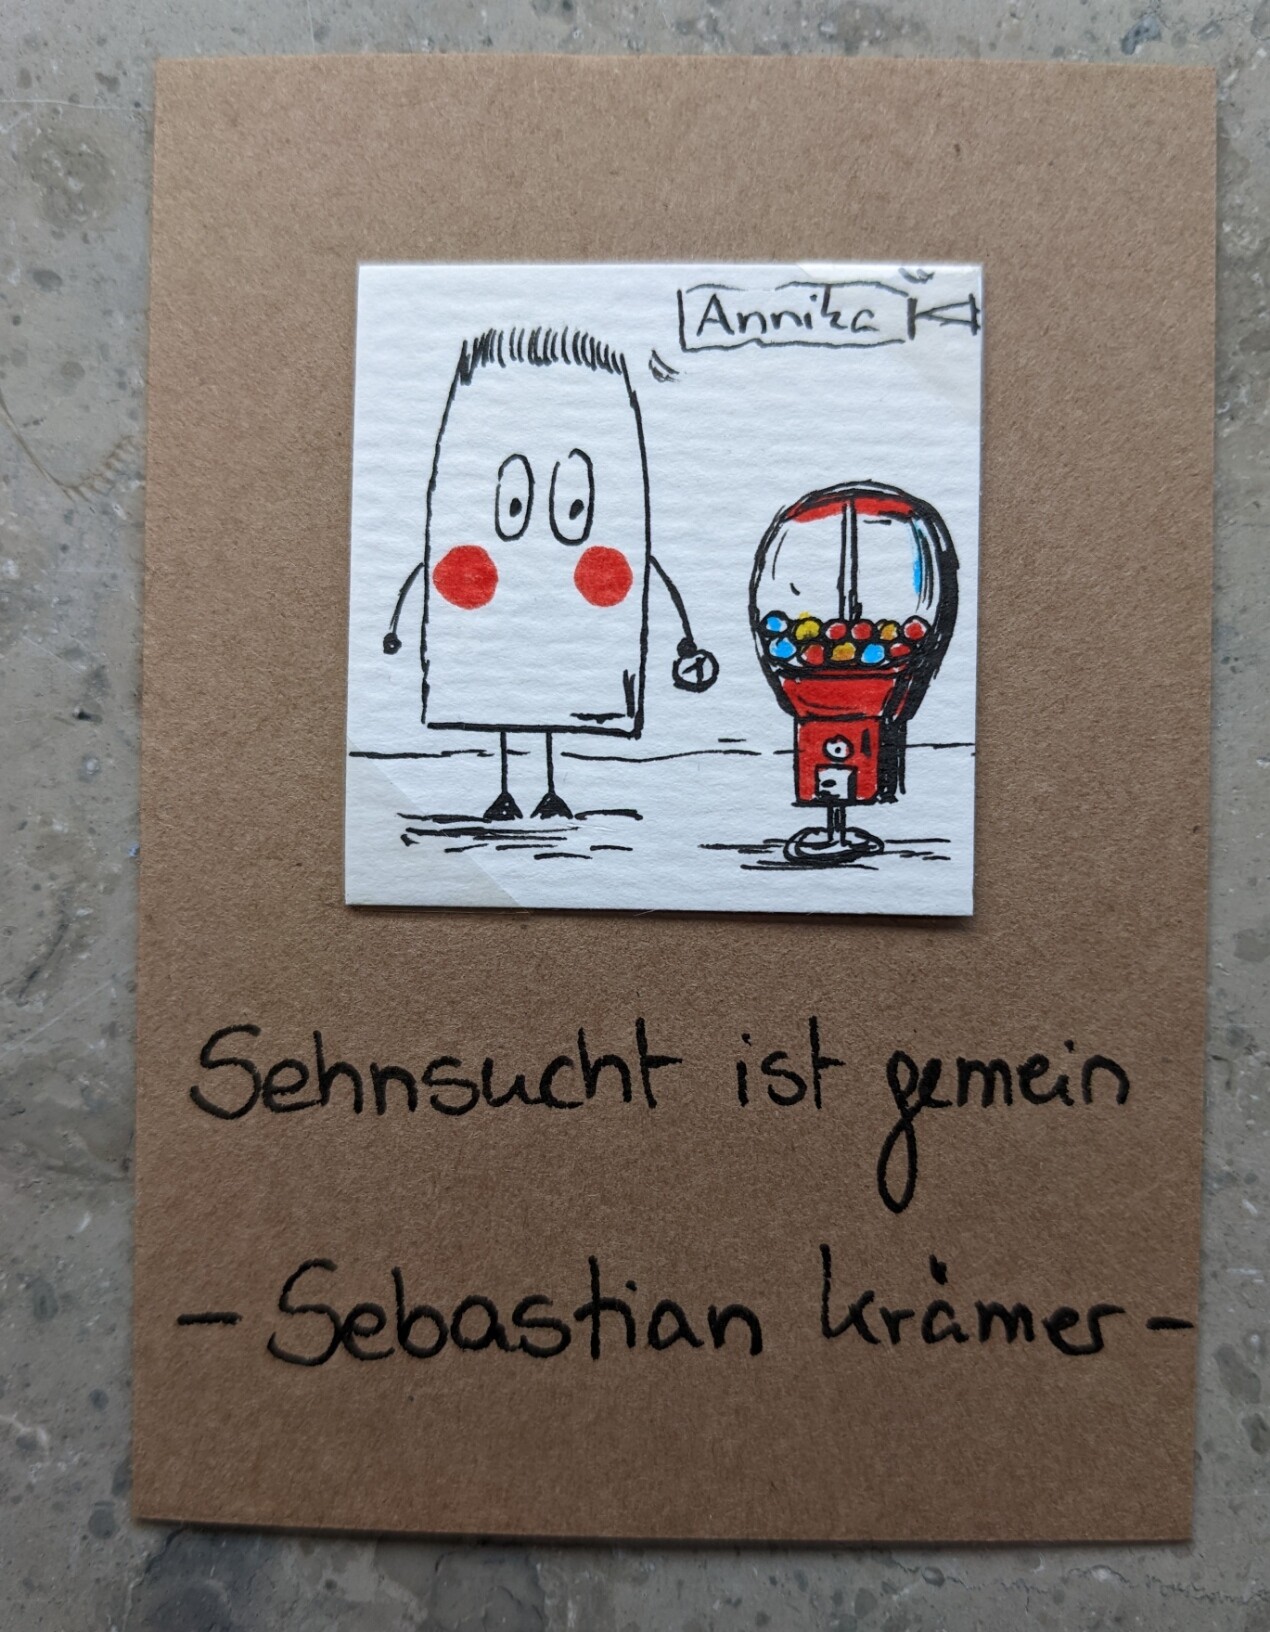 Annika
1
Sehnsucht ist gemein
- Sebastian Krämer -